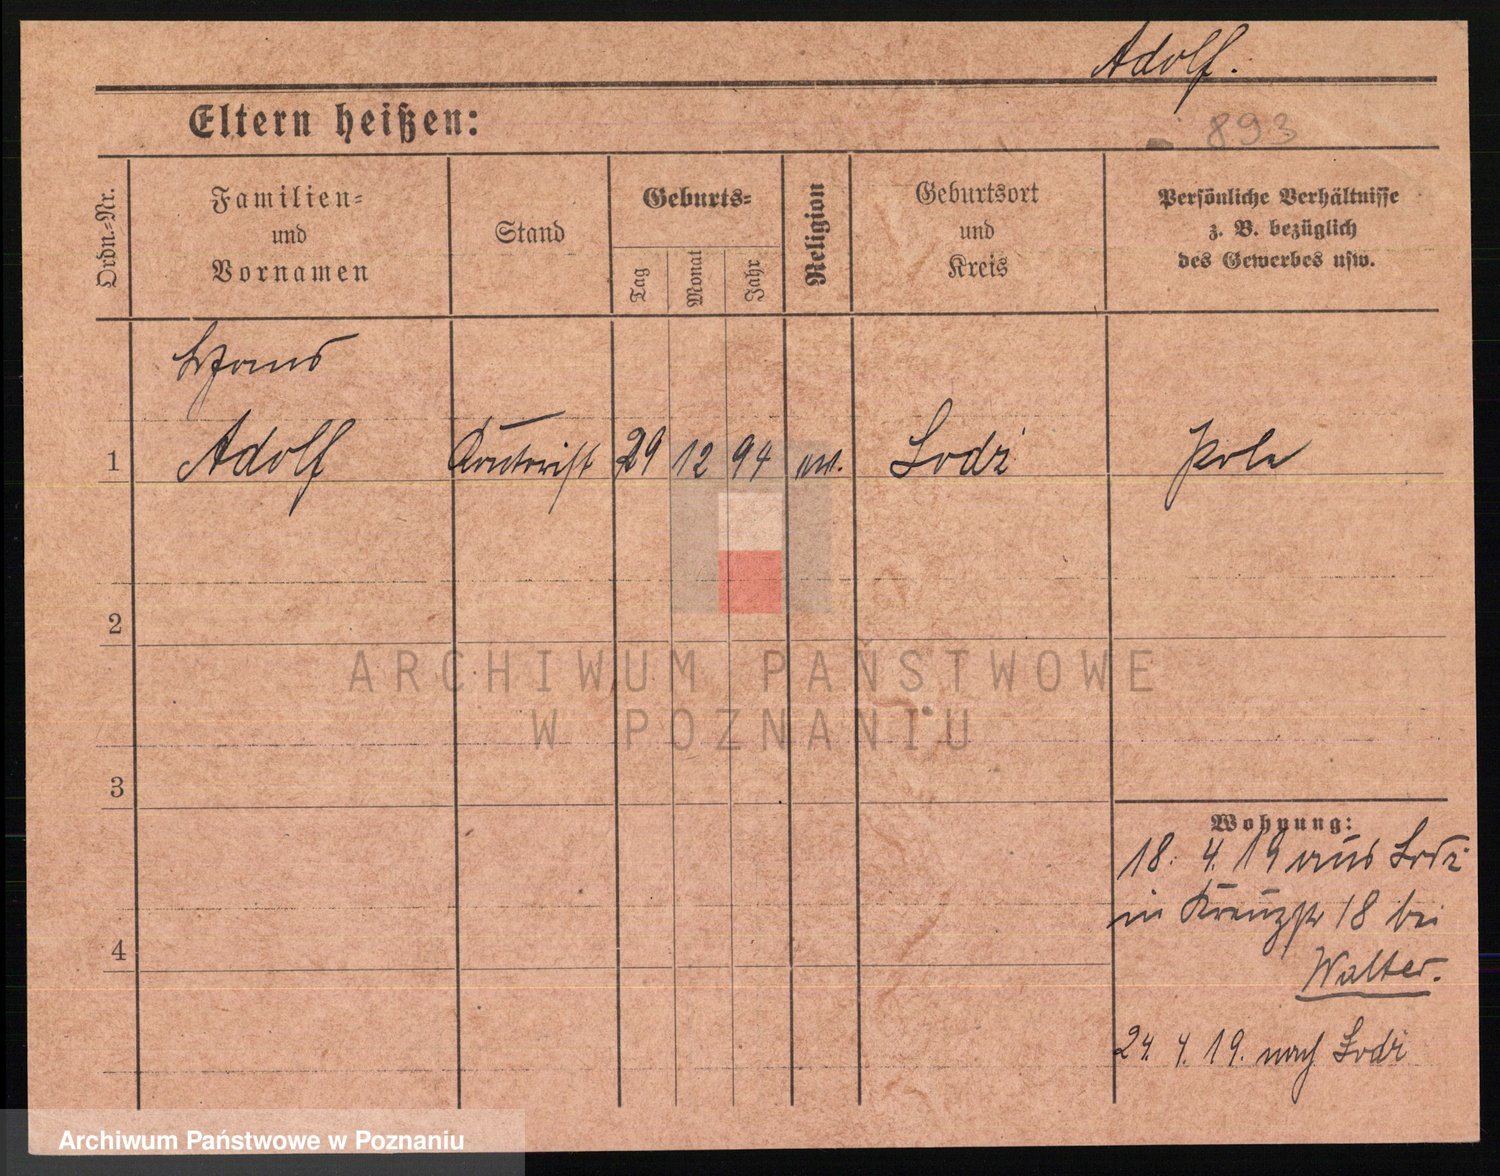 Adolf.
Eltern heißen:
893
Ordn.-Nr.
Familien-
und
Vornamen
Stand
Geburts-
Tag
Monat
Jahr
Religion
Geburtsort
und
Kreis
Persönliche Verhältnisse
z. B. bezüglich
des Gewerbes usw.
1 Adolf 29 12 94 ev. Lodz Pole
2
ARCHIWUM PAŃSTWOWE
W POZNANIU
3
Wohnung:
18. 4. 19 aus Lodz
in Kreuzstr 18 bei
Walter.
4
24. 4. 19. nach Lodz
Archiwum Państwowe w Poznaniu